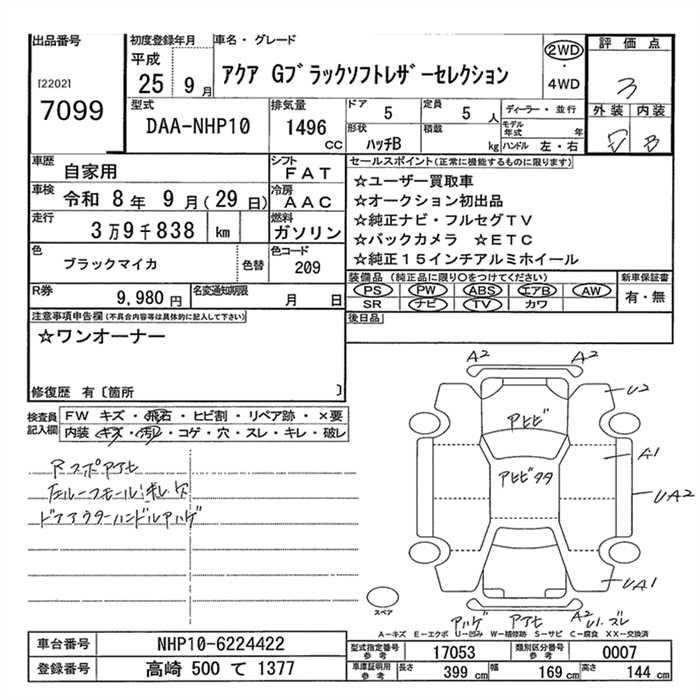 出品番号
[2202]
7099
初度登録年月
平成
25 9月
車名・グレード
アクア Gブラックソフトレザーセレクション
2WD
・
4WD
評価点
3
外装 内装
B
型式
DAA-NHP10
排気量
1496
CC
ドア
5
定員
5人
形状
ハッチB
積載
kg
ディーラー・並行
モデル年式 年
ハンドル 左・右
車歴
自家用
シフト
FAT
車検
令和 8年 9月(29日)
冷房
AAC
走行
3万9千838 km
燃料
ガソリン
色
ブラックマイカ
色替
色コード
209
R券
9,980円
名変通知期限
月 日
セールスポイント(正常に機能するものに限ります)
☆ユーザー買取車
☆オークション初出品
☆純正ナビ・フルセグTV
☆バックカメラ ☆ETC
☆純正15インチアルミホイール
装備品 (純正品に限り○をつけてください)
PS PW ABS エアB AW
SR ナビ TV カワ
新車保証書
有・無
後日品
注意事項申告欄(不具合内容等は具体的に記入して下さい)
☆ワンオーナー
修復歴 有〔箇所 〕
検査員記入欄
FW キズ・飛石・ヒビ割・リペア跡・×要
内装 キズ・汚レ・コゲ・穴・スレ・キレ・破レ
RスポアヒE
左ルーフモール
ドアアウターハンドルアハゲ
A2 A2
U2
アヒビ
A1
アヒビタタ
UA2
UA1
スペア
アハゲ アヒ A2
U1.ズレ
A-キズ E-エクボ U-凹み W-補修跡 S-サビ C-腐食 XX-交換済
車台番号
NHP10-6224422
登録番号
高崎 500 て 1377
型式指定番号
参考
17053
類別区分番号
参考
0007
車庫証明用
参考
長さ 399 cm
幅 169 cm
高さ 144 cm